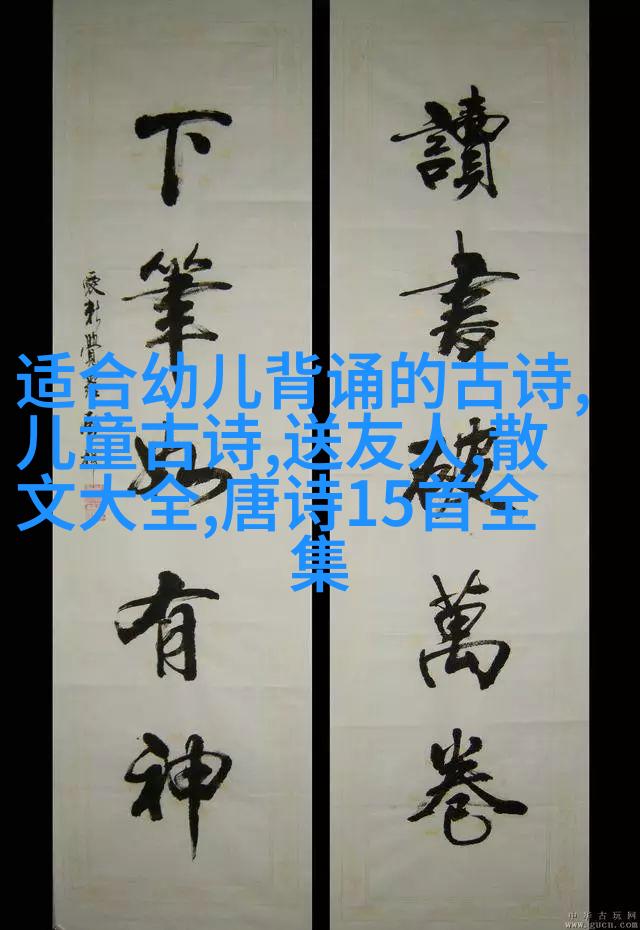 讀書破萬卷
下筆如有神
适合幼儿背诵的古诗,
儿童古诗,送友人,散
文大全,唐诗15首全
集
中华古玩网
www.gucn.com